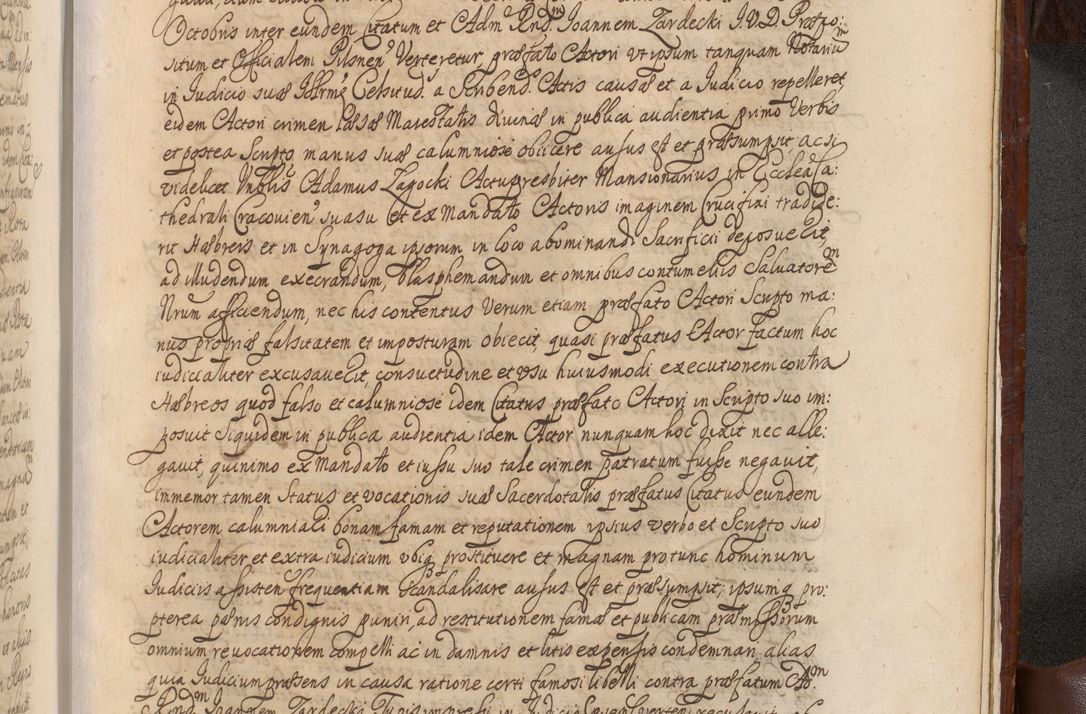 Octobris inter eundem Citatum et Adm Rnd.m Joannem Tardecki J.V.D. Præpo:
situm et Officialem Pilsnen Verteretur, præfato Actori vt ipsum tanquam Notariũ
in Judicio suæ Illrmæ Celsitud. a Scribend. Actis causæ et a Judicio repelleret,
eidem Actori crimen læsæ Maiestatis diuinæ in publica audientia primo Verbis
et postea Scripto manus suæ calumniose obijcere ausus est et præsumpsit ac si
videlicet Vnblis Adamus Zagocki Actupresbiter Mansionarius in Ecclesia Ca:
thedrali Cracouien suasu et ex Mandato Actoris imaginem Crucifixi tradide:
rit Hæbreis et in Synagoga ipsorum in loco abominandi Sacrificii deposuerit,
ad illudendum execrandum, blasphemandum et omnibus contumeliis Saluatorem
Nrum afficiendum, nec his contentus Verum etiam præfato Actori Scripto ma:
nus propriæ falsitatem et imposturam obiecit, quasi præfatus Actor factum hoc
iudicialiter excusauerit, consuetudine et vsu huiusmodi executionem contra
Hæbreos quod falso et calumniose idem Citatus præfato Actori in Scripto suo im:
posuit Siquidem in publica audientia idem Actor nunquam hoc dixit nec alle:
gauit, quinimo ex Mandato et iussu suo tale crimen patratum fuisse negauit,
immemor tamen Status et vocationis suæ Sacerdotalis præfatus Citatus eundem
Actorem calumniari bonam famam et reputationem ipsius verbo et Scripto suo
iudicialiter et extra iudicium vbiq prostituere et magnam protunc hominum
Judiciis assisten frequentiam Scandalisare ausus est et præsumpsit, ipsumq pro:
pterea pænis condignis puniri, ad restitutionem famæ et publicam præmissorum
omnium reuocationem compelli ac in damnis et litis expensis condemnari alias
quia Judicium præsens in causa ratione certi famosi libelli contra præfatum Ad.m
Rnd.m Joannem Tardecki